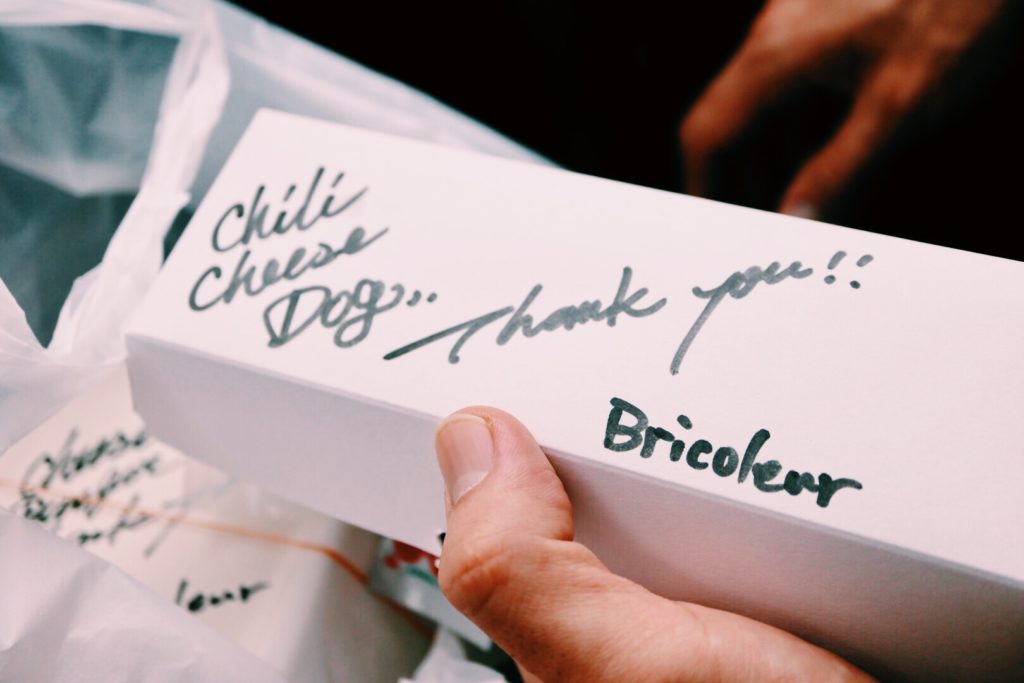 Chili
Cheese
Dog..
Thank you!!
Bricoleur
cheese
leur